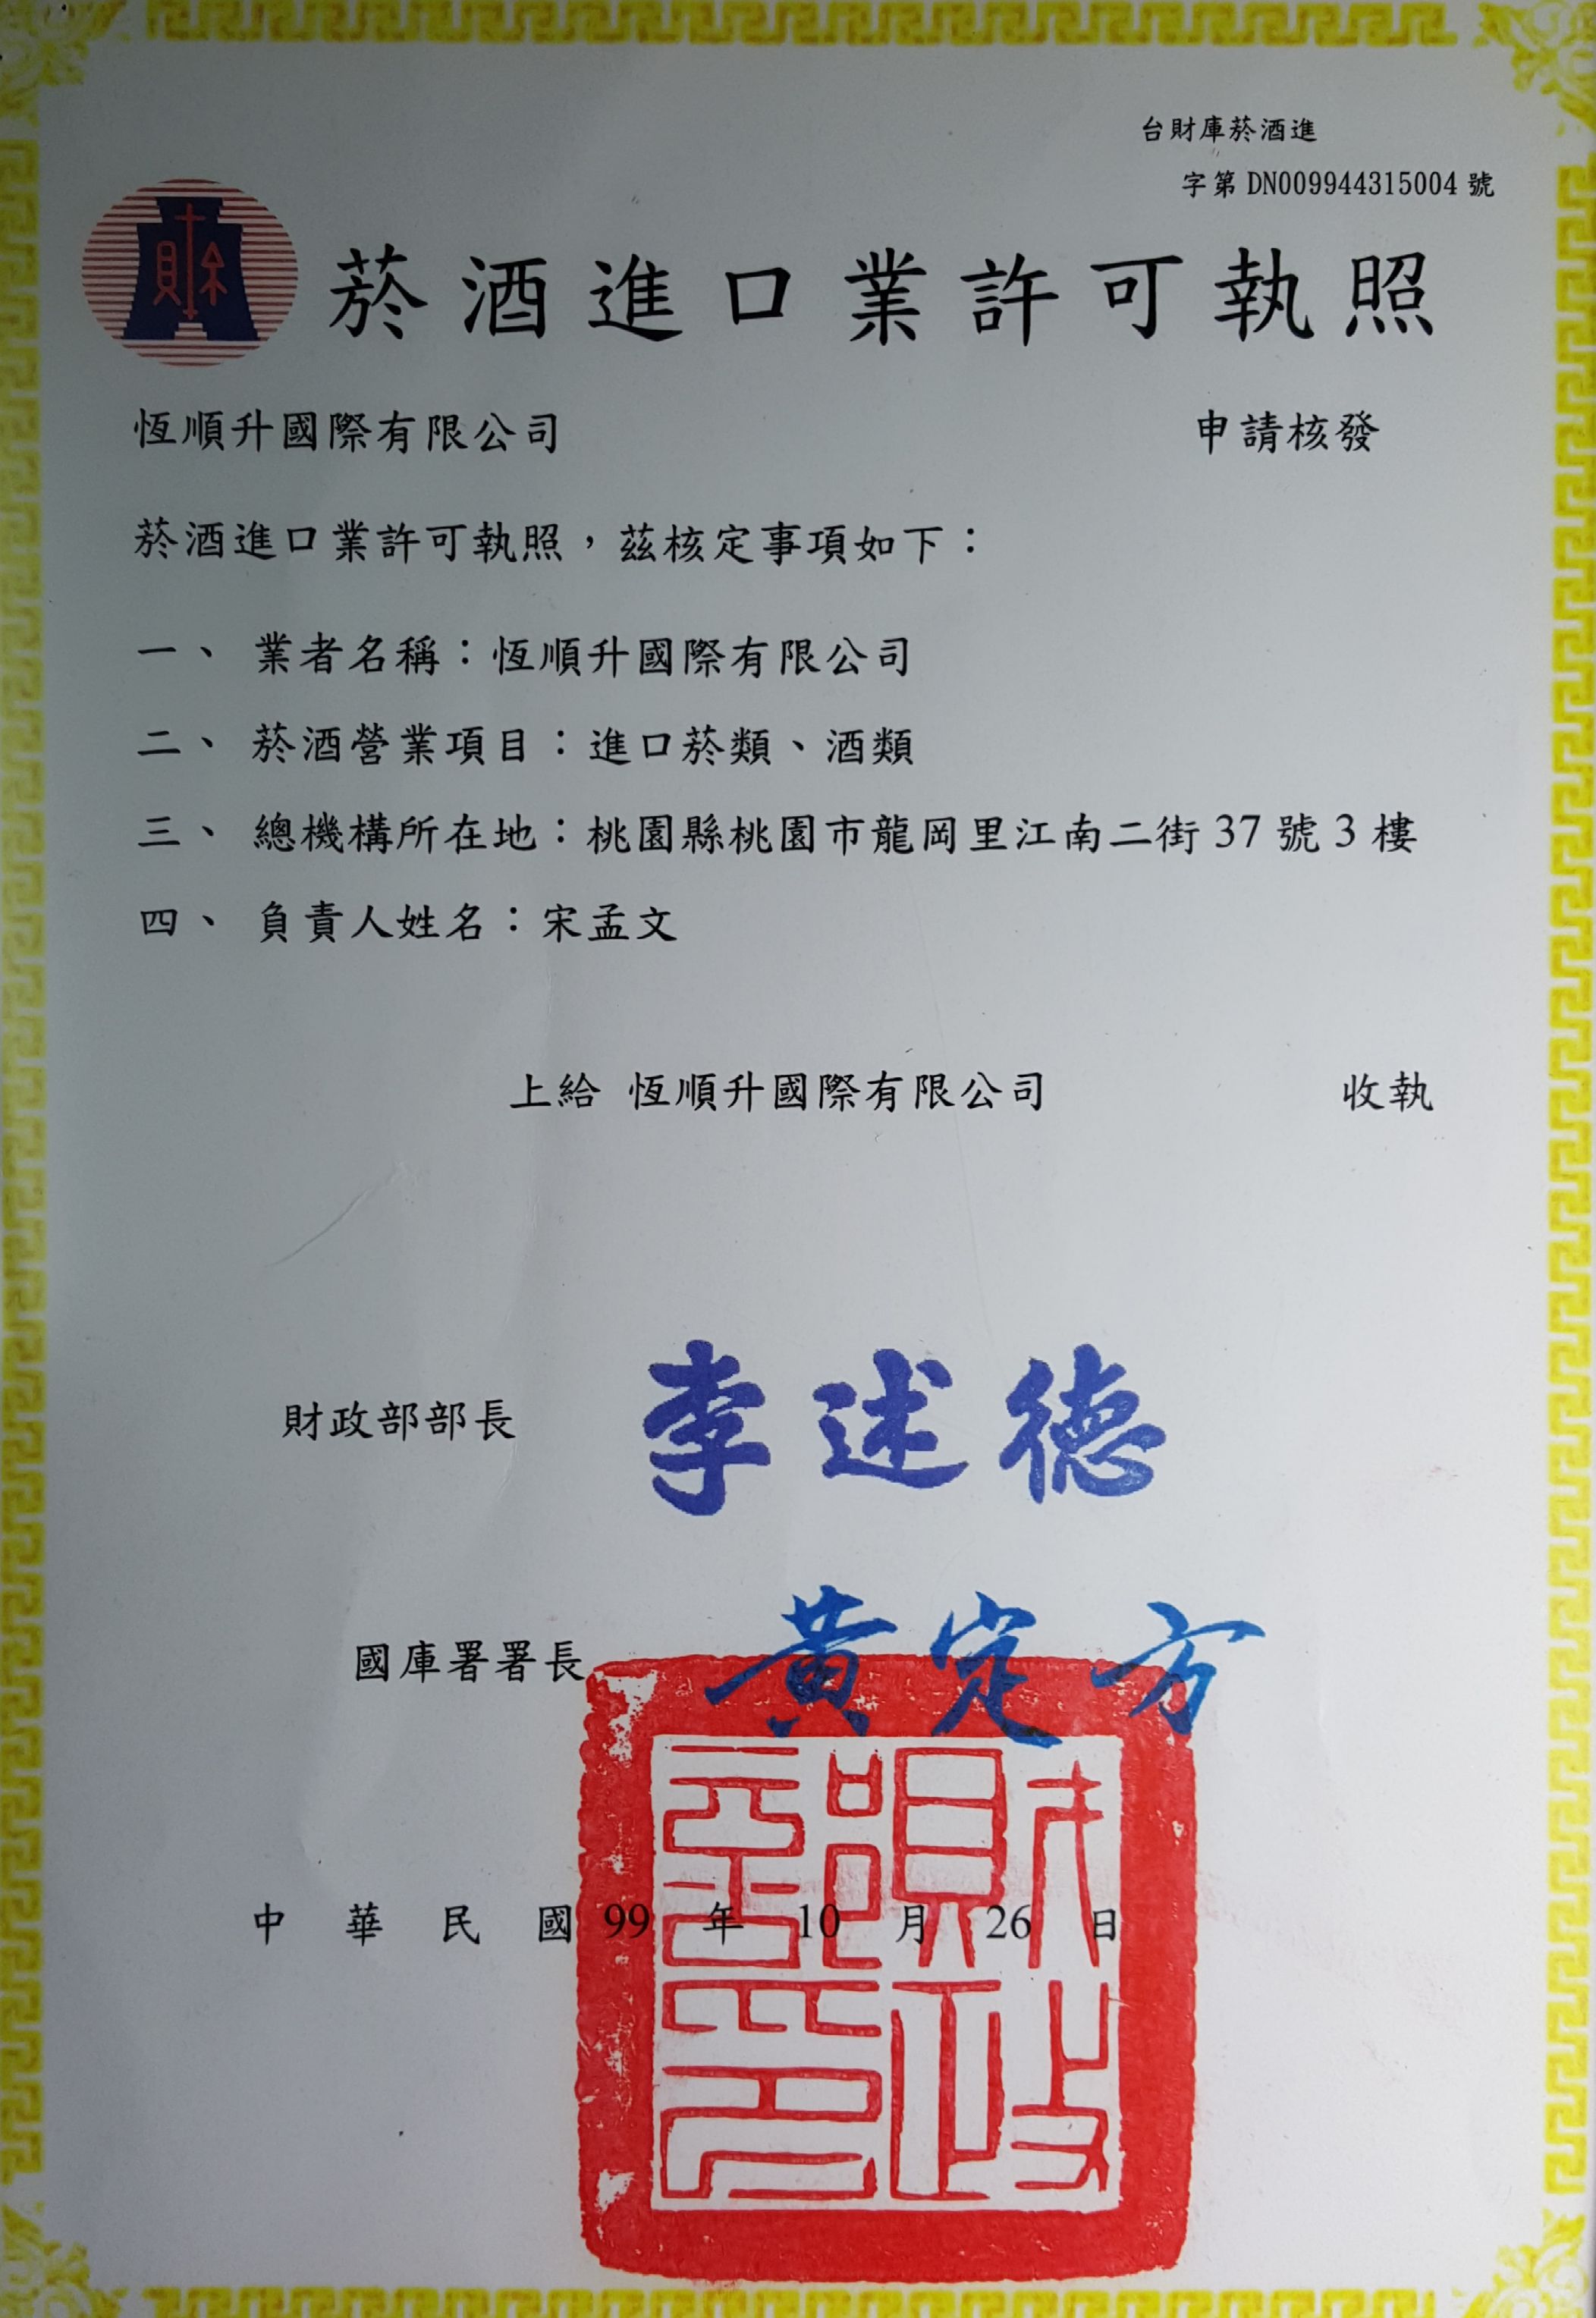 台財庫菸酒進
字第 DN009944315004 號
財
菸酒進口業許可執照
恆順升國際有限公司 申請核發
菸酒進口業許可執照，茲核定事項如下：
一、 業者名稱：恆順升國際有限公司
二、 菸酒營業項目：進口菸類、酒類
三、 總機構所在地：桃園縣桃園市龍岡里江南二街 37 號 3 樓
四、 負責人姓名：宋孟文
上給 恆順升國際有限公司 收執
財政部部長 李述德
國庫署署長 黃定方
中華民國 99 年 10 月 26 日
財政部印